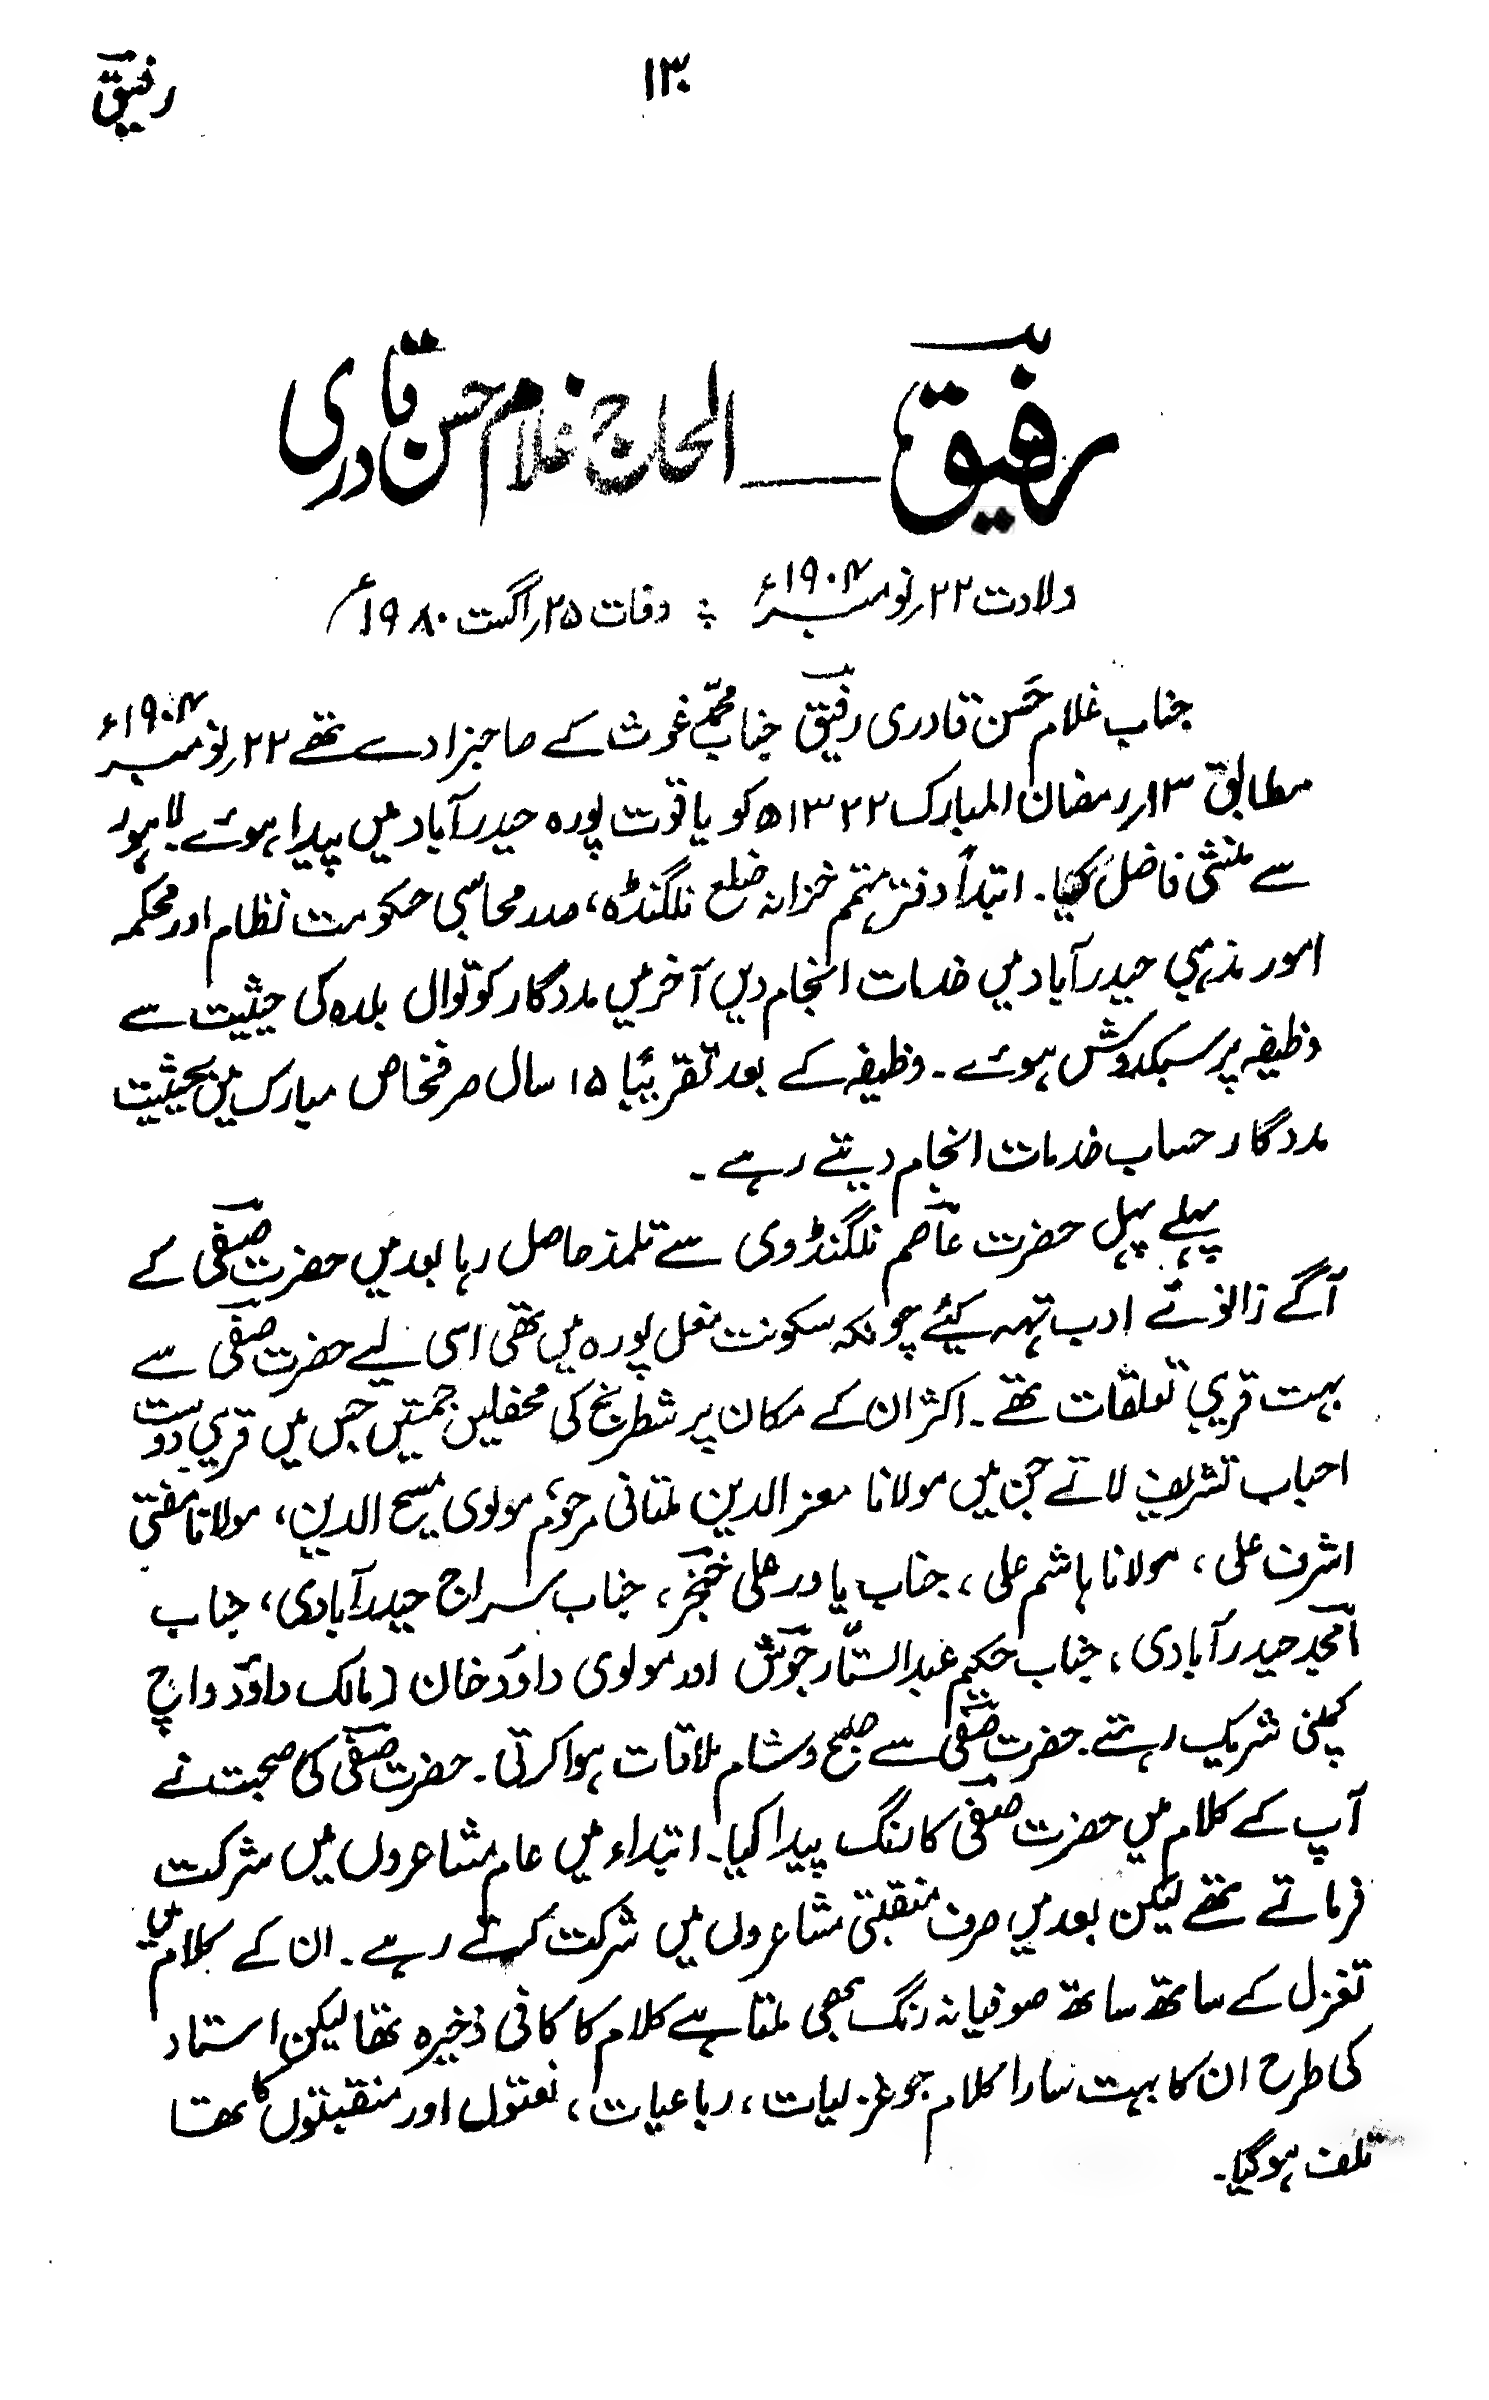 رفیقؔ
۱۳۰
رفیقؔ — الحاج غلام حسن قادری
ولادت ۲۲؍نومبر ۱۹۰۴ء ؛ وفات ۲۵؍اگست ۱۹۸۰ء
جناب غلام حَسن قادری رفیقؔ جناب محمّد غوث کے صاحبزادے تھے ۲۲؍نومبر ۱۹۰۴ء
مطابق ۱۳؍رمضان المبارک ۱۳۲۲ھ کو یاقوت پورہ حیدرآباد میں پیدا ہوئے۔ لاہور
سے منشی فاضل کیا۔ ابتداً دفتر مہتمم خزانہ ضلع نلگنڈہ، صدر محاسبی حکومت نظام اور محکمہ
امور مذہبی حیدرآباد میں خدمات انجام دیں آخر میں مددگار کوتوال بلدہ کی حیثیت سے
وظیفہ پر سبکدوش ہوئے۔ وظیفہ کے بعد تقریبًا ۱۵ سال صرفخاص مبارک میں بحیثیت
مددگار حساب خدمات انجام دیتے رہے۔
پہلے پہل حضرت عاصمؔ نلگنڈوی سے تلمذ حاصل رہا بعد میں حضرت صفیؔ کے
آگے زانوئے ادب تہہ کیئے چونکہ سکونت مغل پورہ میں تھی اسی لیے حضرت صفیؔ سے
بہت قریبی تعلقات تھے۔ اکثر ان کے مکان پر شطرنج کی محفلیں جمتیں جس میں قریبی دوست
احباب تشریف لاتے جن میں مولانا معز الدین ملتانی مرحوم مولوی مسیح الدین، مولانا مفتی
اشرف علی، مولانا ہاشم علی، جناب یاور علی خنجرؔ، جناب سراج حیدرآبادی، جناب
امجدؔ حیدرآبادی، جناب حکیم عبدالستّار جوشؔ اور مولوی داؤد خان (مالک داؤد واچ
کمپنی شریک رہتے۔ حضرت صفیؔ سے صبح و شام ملاقات ہوا کرتی۔ حضرت صفیؔ کی صحبت نے
آپ کے کلام میں حضرت صفیؔ کا رنگ پیدا کیا۔ ابتداء میں عام مشاعروں میں شرکت
فرماتے تھے لیکن بعد میں صرف منقبتی مشاعروں میں شرکت کرتے رہے۔ ان کے کلام میں
تغزل کے ساتھ ساتھ صوفیانہ رنگ بھی ملتا ہے کلام کا کافی ذخیرہ تھا لیکن استاد
کی طرح ان کا بہت سارا کلام جو غزلیات، رباعیات، نعتوں اور منقبتوں کا تھا
تلف ہوگیا۔